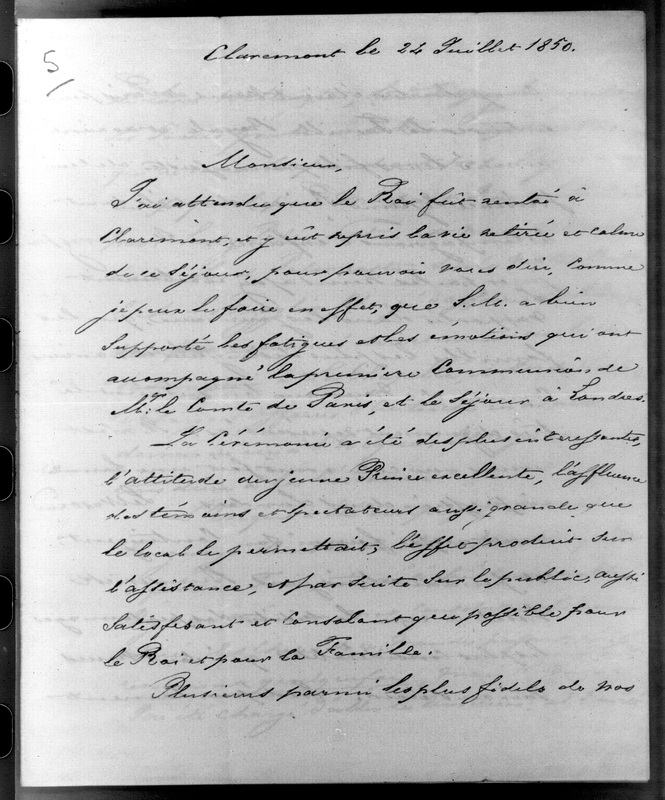 5
Claremont le 24 Juillet 1850.
Monsieur,
J'ai attendu que le Roi fût rentré à
Claremont, et y eût repris la vie retirée et calme
de ce Séjour, pour pouvoir vous dire, comme
je peux le faire en effet, que S.M. a bien
Supporté les fatigues et les émotions qui ont
accompagné la première Communion de
Mgr. le Comte de Paris, et le Séjour à Londres.
La Cérémonie a été des plus interessantes,
l'attitude du jeune Prince excellente, l'affluence
des témoins et spectateurs aussi grande que
le local le permettait; l'effet produit sur
l'assistance, et par suite sur le public, aussi
Satisfesant et Consolant que possible pour
le Roi et pour la Famille.
Plusieurs parmi les plus fidels de nos